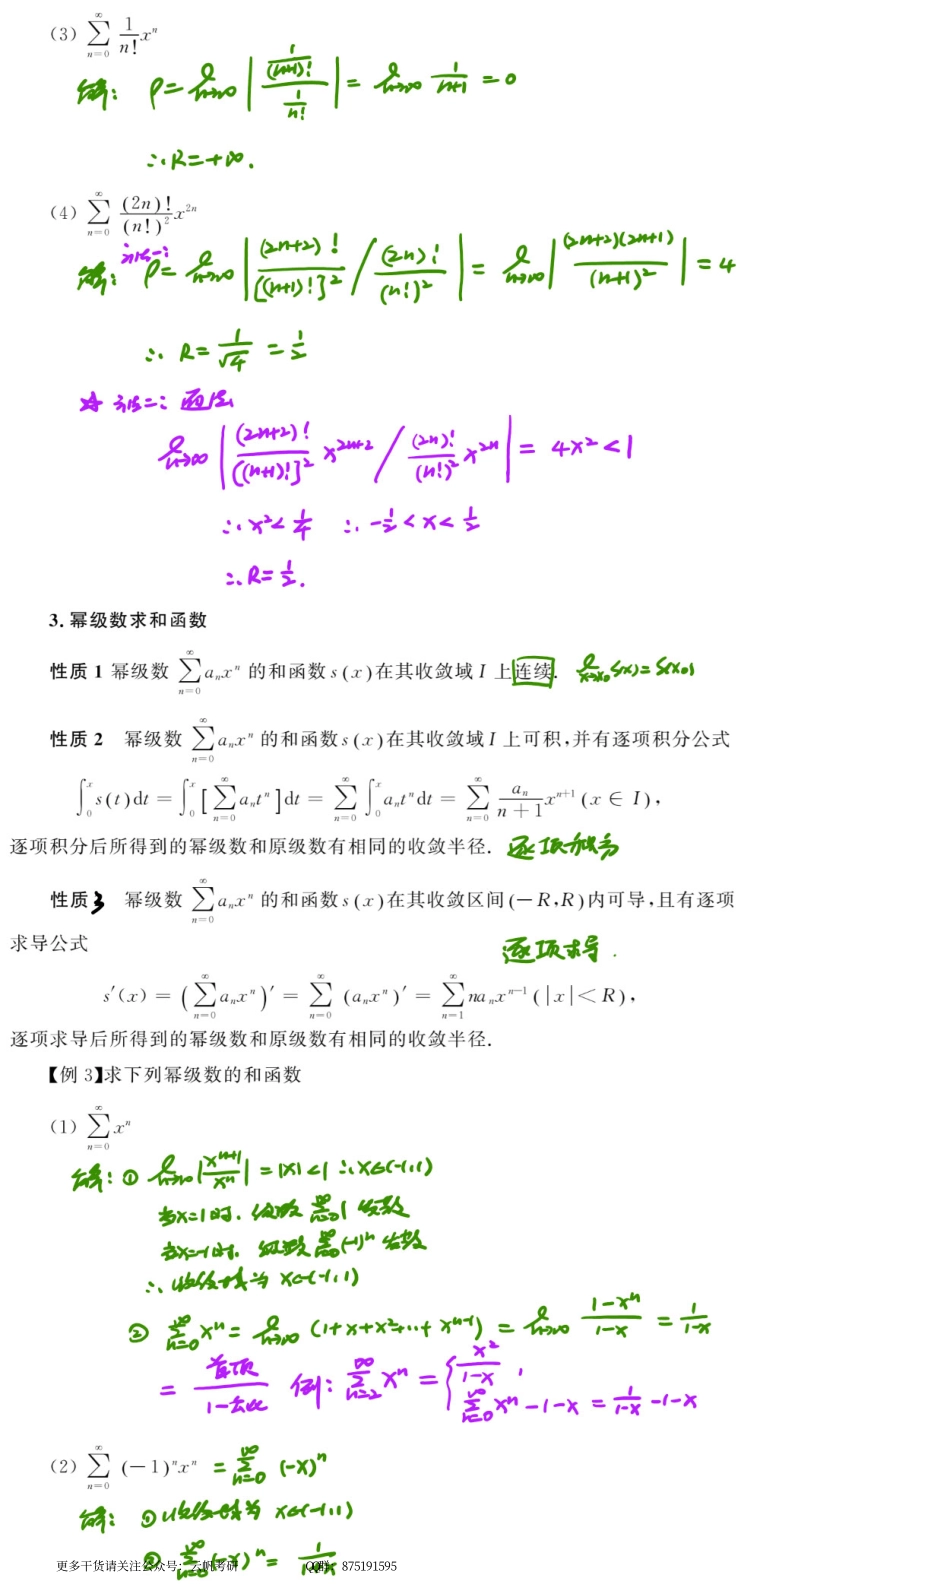 (3) ∑_{n=0}^{∞} 1/n! x^n
解: ρ = lim_{n→∞} | 1/(n+1)! / 1/n! | = lim_{n→∞} 1/(n+1) = 0
∴ R = +∞.
(4) ∑_{n=0}^{∞} (2n)!/(n!)² x^{2n}
解: 法一: ρ = lim_{n→∞} | (2n+2)!/[(n+1)!]² / (2n)!/(n!)² | = lim_{n→∞} | (2n+2)(2n+1)/(n+1)² | = 4
∴ R = 1/√4 = 1/2
☆ 法二: 通法
lim_{n→∞} | (2n+2)!/[(n+1)!]² x^{2n+2} / (2n)!/(n!)² x^{2n} | = 4x² < 1
∴ x² < 1/4 ∴ -1/2 < x < 1/2
∴ R = 1/2.
3. 幂级数求和函数
性质 1 幂级数 ∑_{n=0}^{∞} a_n x^n 的和函数 s(x) 在其收敛域 I 上连续. lim_{x→x₀} S(x) = S(x₀)
性质 2 幂级数 ∑_{n=0}^{∞} a_n x^n 的和函数 s(x) 在其收敛域 I 上可积,并有逐项积分公式
∫_0^x s(t)dt = ∫_0^x [∑_{n=0}^{∞} a_n t^n]dt = ∑_{n=0}^{∞} ∫_0^x a_n t^n dt = ∑_{n=0}^{∞} a_n/(n+1) x^{n+1} (x ∈ I),
逐项积分后所得到的幂级数和原级数有相同的收敛半径. 逐项积分
性质3 幂级数 ∑_{n=0}^{∞} a_n x^n 的和函数 s(x) 在其收敛区间(-R,R)内可导,且有逐项
求导公式 逐项求导.
s'(x) = (∑_{n=0}^{∞} a_n x^n)' = ∑_{n=0}^{∞} (a_n x^n)' = ∑_{n=1}^{∞} na_n x^{n-1} (|x| < R),
逐项求导后所得到的幂级数和原级数有相同的收敛半径.
【例 3】求下列幂级数的和函数
(1) ∑_{n=0}^{∞} x^n
解: ① lim_{n→∞} | x^{n+1}/x^n | = |x| < 1 ∴ x∈(-1,1)
当x=1时. 级数 ∑_{n=0}^{∞} 1 发散
当x=-1时. 级数 ∑_{n=0}^{∞} (-1)^n 发散
∴ 收敛域为 x∈(-1,1)
② ∑_{n=0}^{∞} x^n = lim_{n→∞} (1+x+x²+…+x^{n-1}) = lim_{n→∞} (1-x^n)/(1-x) = 1/(1-x)
= 首项/(1-公比) 例: ∑_{n=2}^{∞} x^n = { x²/(1-x),
∑_{n=0}^{∞} x^n -1-x = 1/(1-x) -1-x
(2) ∑_{n=0}^{∞} (-1)^n x^n = ∑_{n=0}^{∞} (-x)^n
解: ① 收敛域为 x∈(-1,1)
② ∑_{n=0}^{∞} (-x)^n = 1/(1+x)
更多干货请关注公众号:云帆考研 QQ群:875191595